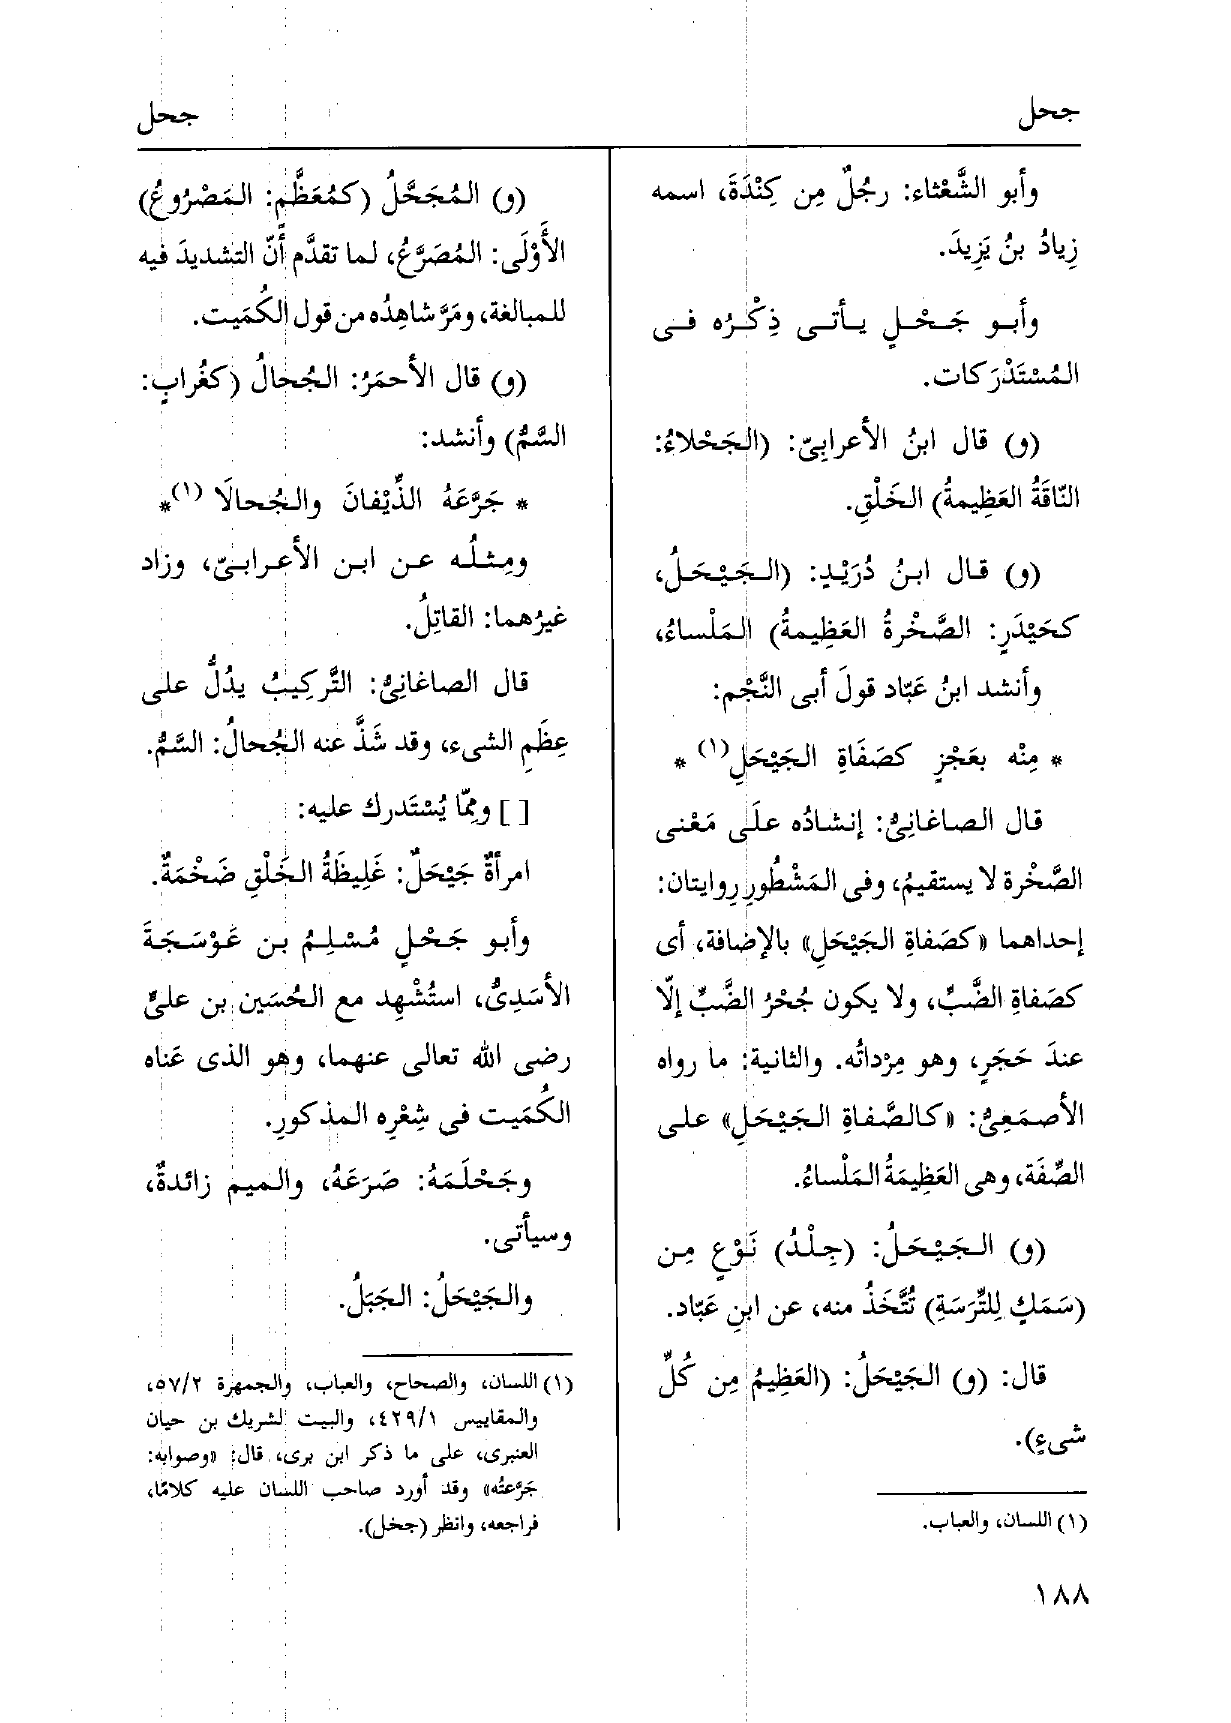 جحل
جحل
وأبو الشَّعْثاء: رجُلٌ مِن كِنْدَةَ، اسمه
زِيادُ بنُ يَزِيدَ.
وأبـو جَـحْـلٍ يـأتـى ذِكْـرُه فـى
المُسْتَدْرَكات.
(و) قال ابنُ الأعرابِىّ: (الجَحْلاءُ:
النّاقَةُ العَظِيمةُ) الخَلْقِ.
(و) قـال ابـنُ دُرَيْـدٍ: (الـجَـيْـحَـلُ،
كحَيْدَرٍ: الصَّخْرةُ العَظِيمةُ) المَلْساءُ،
وأنشد ابنُ عَبّاد قولَ أبى النَّجْم:
* مِنْه بعَجْزٍ كصَفَاةِ الجَيْحَلِ(١) *
قال الصاغانِىُّ: إنشادُه علَى مَعْنى
الصَّخْرة لا يستقيمُ، وفى المَشْطُورِ رِوايتان:
إحداهما «كصَفاةِ الجَيْحَلِ» بالإضافة، أى
كصَفاةِ الضَّبِّ، ولا يكون جُحْرُ الضَّبِّ إلّا
عندَ حَجَرٍ، وهو مِرْداتُه. والثانية: ما رواه
الأصمَعِىُّ: «كالصَّفاةِ الجَيْحَلِ» على
الصِّفَة، وهى العَظِيمَةُ المَلْساءُ.
(و) الـجَـيْـحَـلُ: (جِلْدُ) نَوْعٍ مِـن
(سَمَكٍ لِلتِّرَسَةِ) تُتَّخَذُ منه، عن ابنِ عَبّاد.
قال: (و) الجَيْحَلُ: (العَظِيمُ مِن كُلِّ
شىءٍ).
(١) اللسان، والعباب.
(و) المُجَحَّلُ (كمُعَظَّمٍ: المَصْرُوعُ)
الأَوْلَى: المُصَرَّعُ، لما تقدَّم أَنّ التشديدَ فيه
للمبالغة، ومَرَّ شاهِدُه من قول الكُمَيت.
(و) قال الأحمَرُ: الجُحالُ (كغُرابٍ:
السَّمُّ) وأنشد:
* جَرَّعَهُ الذِّيْفانَ والجُحالَا (١)*
ومِـثـلُـه عـن ابـن الأعـرابـىّ، وزاد
غيرُهما: القاتِلُ.
قال الصاغانِىُّ: التَّركِيبُ يدُلُّ على
عِظَمِ الشىء، وقد شَذَّ عنه الجُحالُ: السَّمُّ.
[ ] ومِمّا يُسْتَدرك عليه:
امرأةٌ جَيْحَلٌ: غَلِيظَةُ الخَلْقِ ضَخْمَةٌ.
وأبـو جَـحْـلٍ مُـسْـلِـمُ بـن عَـوْسَـجَـةَ
الأسَدِىُّ، استُشْهِد مع الحُسَين بن علىٍّ
رضى الله تعالى عنهما، وهو الذى عَناه
الكُمَيت فى شِعْرِه المذكورِ.
وجَحْلَمَهُ: صَرَعَهُ، والميم زائدةٌ،
وسيأتى.
والجَيْحَلُ: الجَبَلُ.
(١) اللسان، والصحاح، والعباب، والجمهرة ٥٧/٢،
والمقاييس ٤٢٩/١، والبيت لشريك بن حيان
العنبرى، على ما ذكر ابن برى، قال: «وصوابه:
جَرَّعتُه» وقد أورد صاحب اللسان عليه كلامًا،
فراجعه، وانظر (جخل).
١٨٨